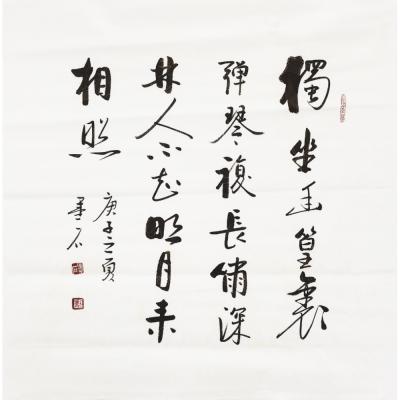 獨坐幽篁裏
彈琴復長嘯深
林人不知明月来
相照
庚子之夏